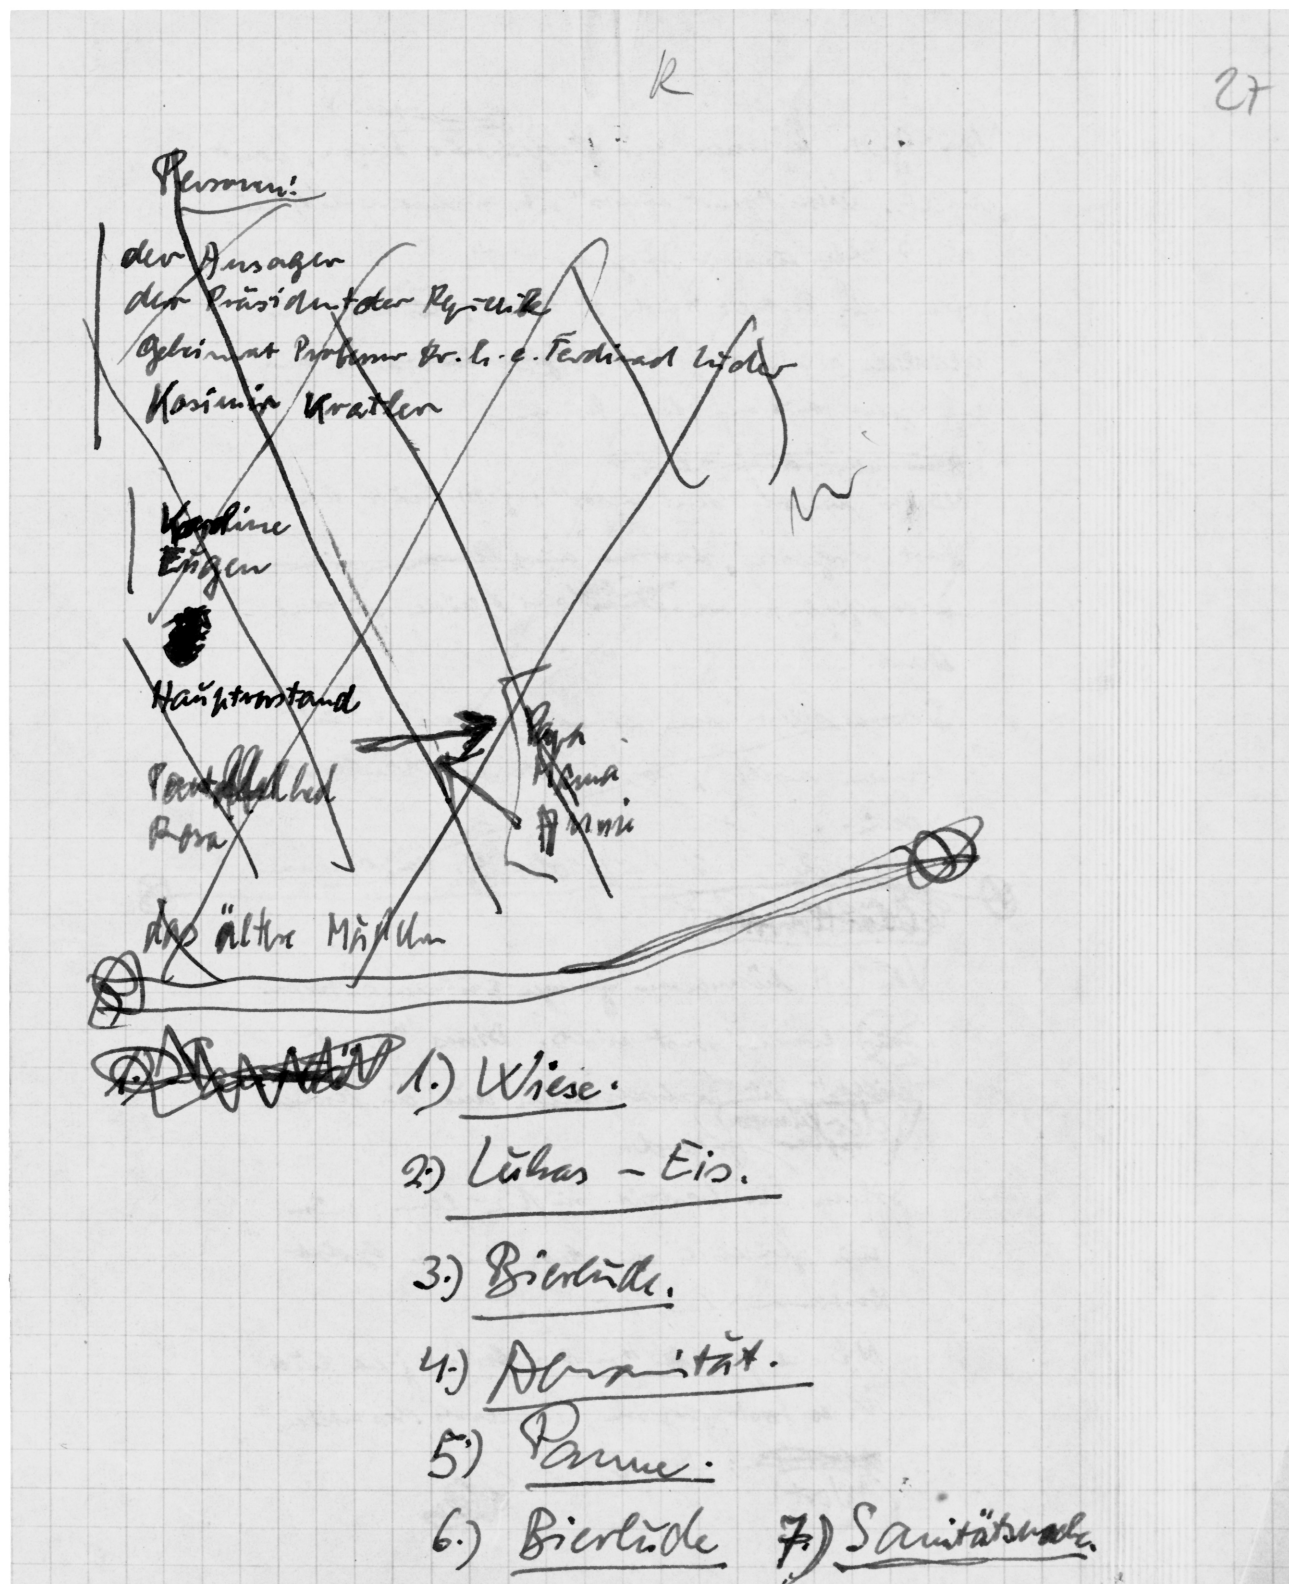 R
27
Personen:
der Ansager
der Präsident der Republik
Geheimrat Professor Dr. h. c. Ferdinand Lüder
Kasimir Kratler
Karoline
Eugen
Hauptvorstand
Papa
Mama
Annie
Rosa
das ältere Mädchen
1.) Wiese.
2.) Lukas – Eis.
3.) Bierbude.
4.) Abnormität.
5.) Panne.
6.) Bierbude
7.) Sanitätswache.